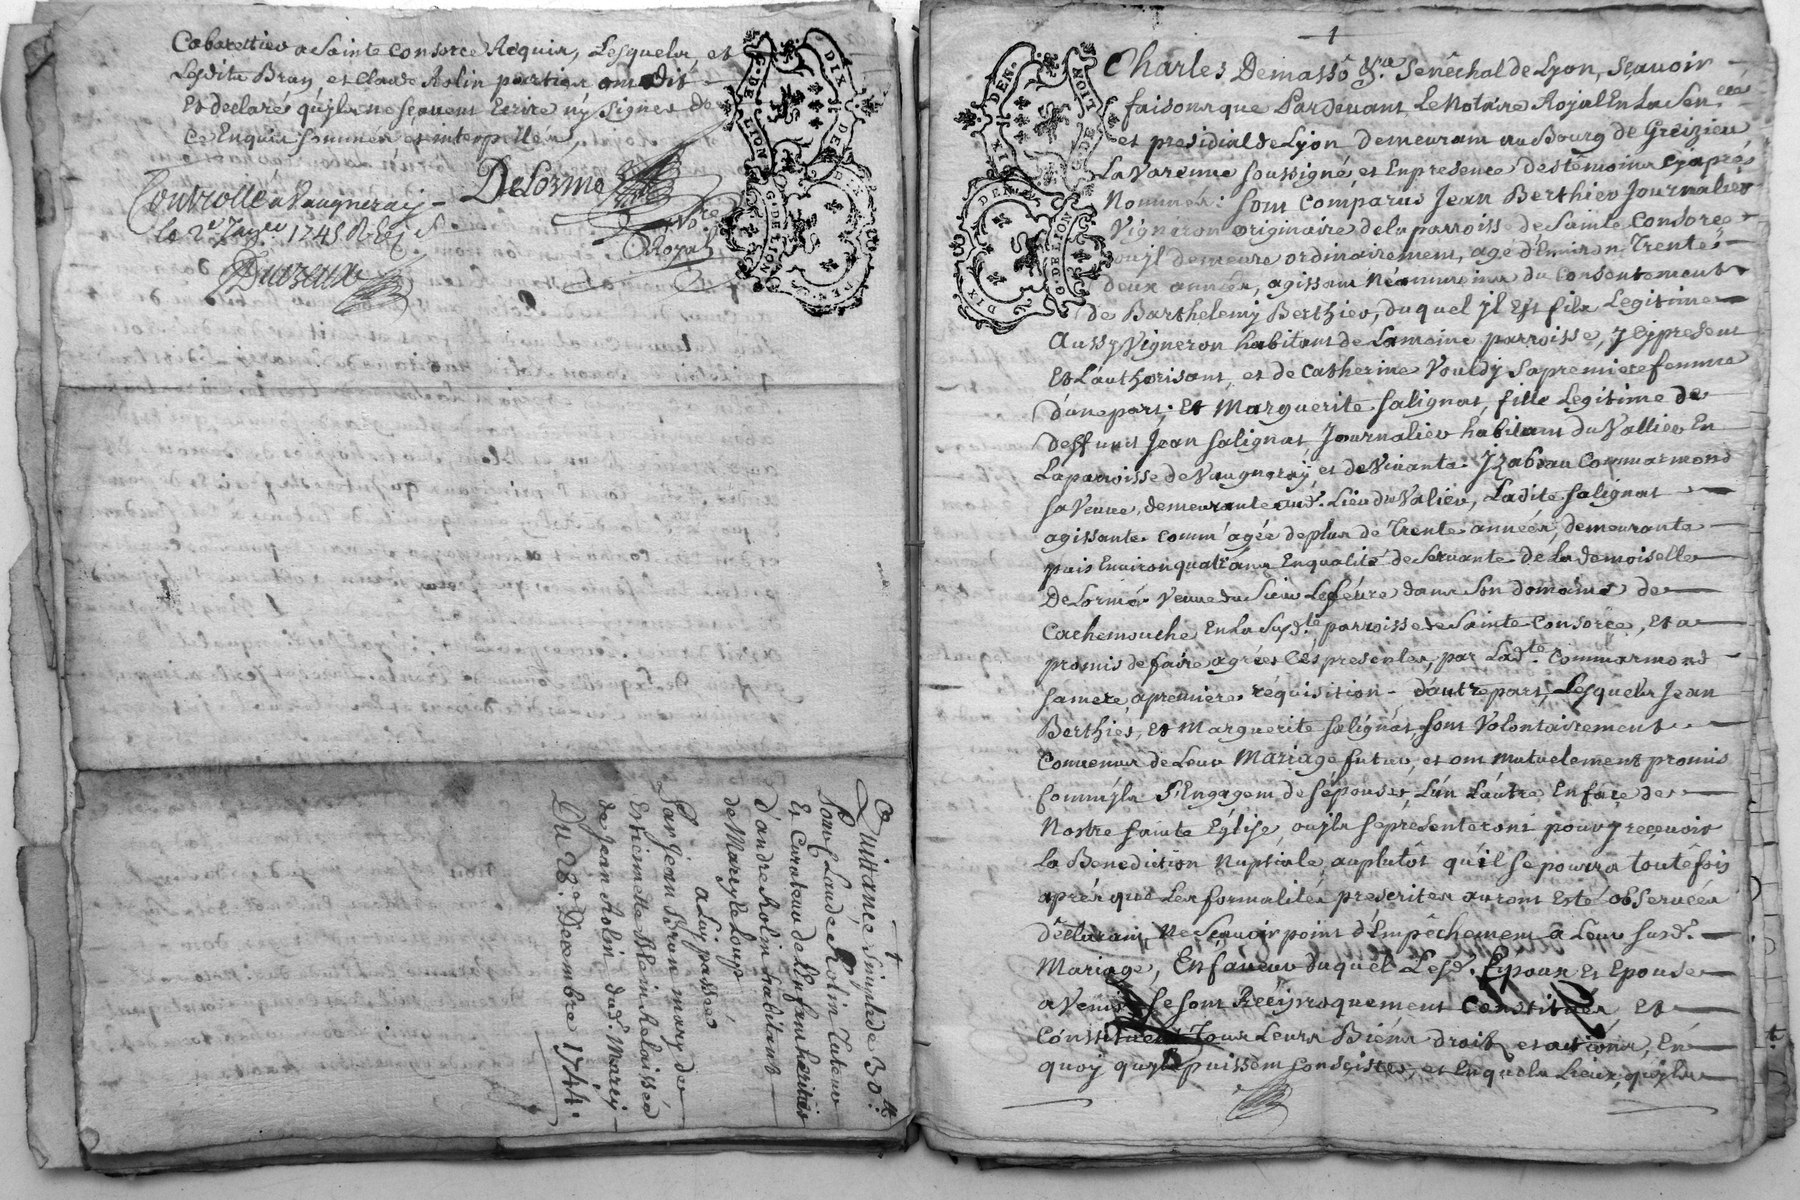 Cabarettier a Sainte Consorce Requis, Lesquels, et
Lesdits Brun et Claude Rolin parties ont dit
Et declaré quyls ne sçavent Ecrire ny Signer de
Ce Enquis sommés et interpellés
Delorme
Nore
Royal
Controllé a Vaugneray
le 2e Janer 1745
G. DE LION
DIX DEN.
G. DE LION
DIX DEN.
Quittance Simple de 30 ₶.
pour Claude Rolin Tuteur
Et Curateur de l'Enfant heritier
d'andré Rolin habitant
de Marcy le Loup
a Luy passée
Par Jean Brun mary de
Estiennette Relaissée
de Jean Rolin dud. Marcy
Du 28e Decembre 1744.
1
DIX DEN.
G. DE LION
DIX DEN.
G. DE LION
Charles Demasso &a. Senéchal de Lyon, Sçavoir
faisons que Pardevant Le Notaire Royal En La Sen.ée
et presidial de Lyon demeurant au Bourg de Greizieu
La Varenne soussigné, et En presence des témoins Cy aprés
Nommés: Sont Comparus Jean Berthier Journalier
Vigneron originaire de la parroisse de Sainte Consorce
ouyl demeure ordinairement, agé d'Environ Trente
deux années, agissant Néanmoins du Consentement
de Barthelemy Berthier, duquel yl Est fils Legitime
Aussy Vigneron habitant de La meme parroisse, Icy present
Et L'authorisant, et de Catherine Vouldy Sa premiere femme
d'une part; Et Marguerite Salignat, fille Legitime de
deffunt Jean Salignat Journalier habitant du Vallier En
La parroisse de Vaugneray, et de Vivante Yzabeau Commarmond
Sa Veuve, demeurante aud. Lieu du Valier, Ladite Salignat
agissante Comm'agée de plus de Trente années, demeurante
puis Environ quatr'ans En qualité de Servante de La demoiselle
De Lorme Veuve du Sieur Lefevre dans Son domaine de
Cachemouche En La Susd.te parroisse de Sainte Consorce, Et a
promis de faire agreer Cés presentes, par Lad.te Commarmond
Sa mere, a premiere réquisition - d'autre part, Lesquels Jean
Berthier, Et Marguerite Salignat, sont Volontairement
Convenus de Leur Mariage futur, et ont mutuelement promis
Comm'yls S'Engagent de s'épouser, L'un L'autre En face de
Nostre Sainte Eglise, ouyls se presenteront pour y reçevoir
La Benediction Nuptiale, auplutôt qu'il se pourra toutefois
aprés que Les formalités prescrites auront Eté observées
déclarant, Ne Sçavoir point d'Empêchement a Leur Susd.
Mariage, En faveur duquel Lesd. Epoux Et Epouse
a Venir, se sont Réciproquement Constitués et
Constituent Tous Leurs Biéns droits et actions, En
quoy quyls puissent Consister, et En quels Lieux, quyls